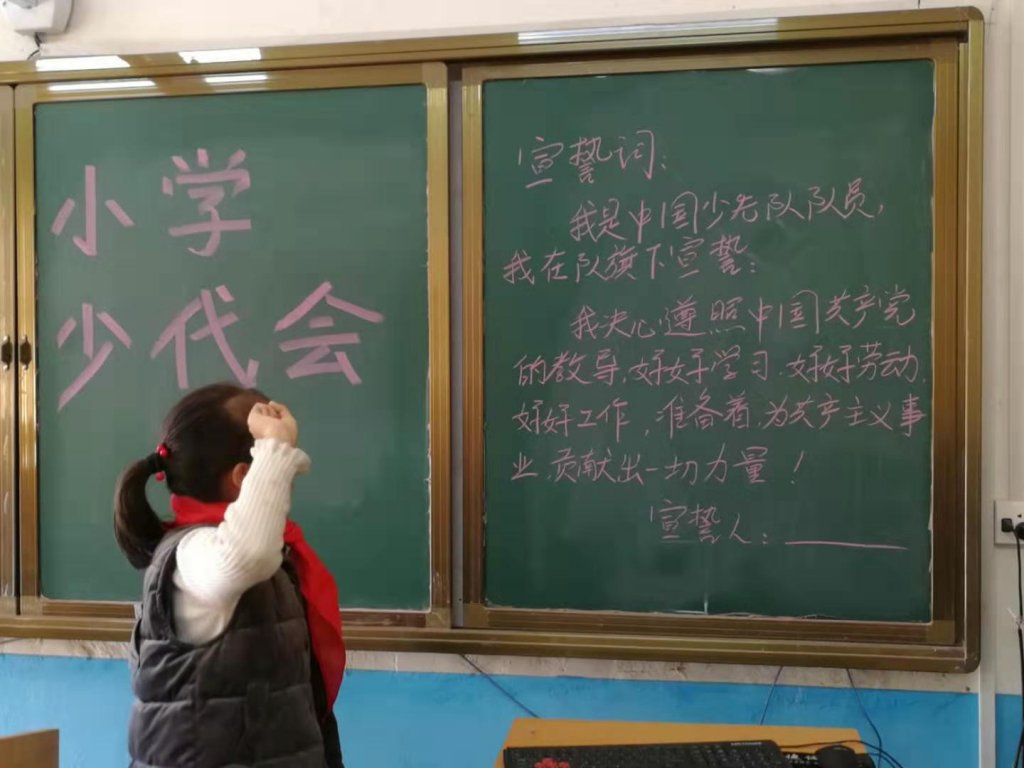 小学
少代会
宣誓词:
我是中国少先队队员,
我在队旗下宣誓:
我决心遵照中国共产党
的教导,好好学习,好好劳动,
好好工作,准备着,为共产主义事
业,贡献出一切力量!
宣誓人: